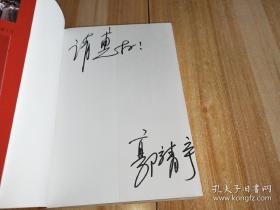 请惠存!
郭靖宇
孔夫子旧书网